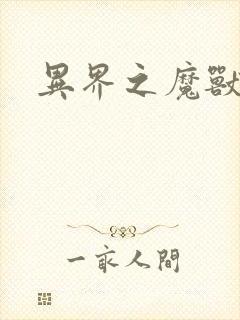 異界之魔獸
一家人間